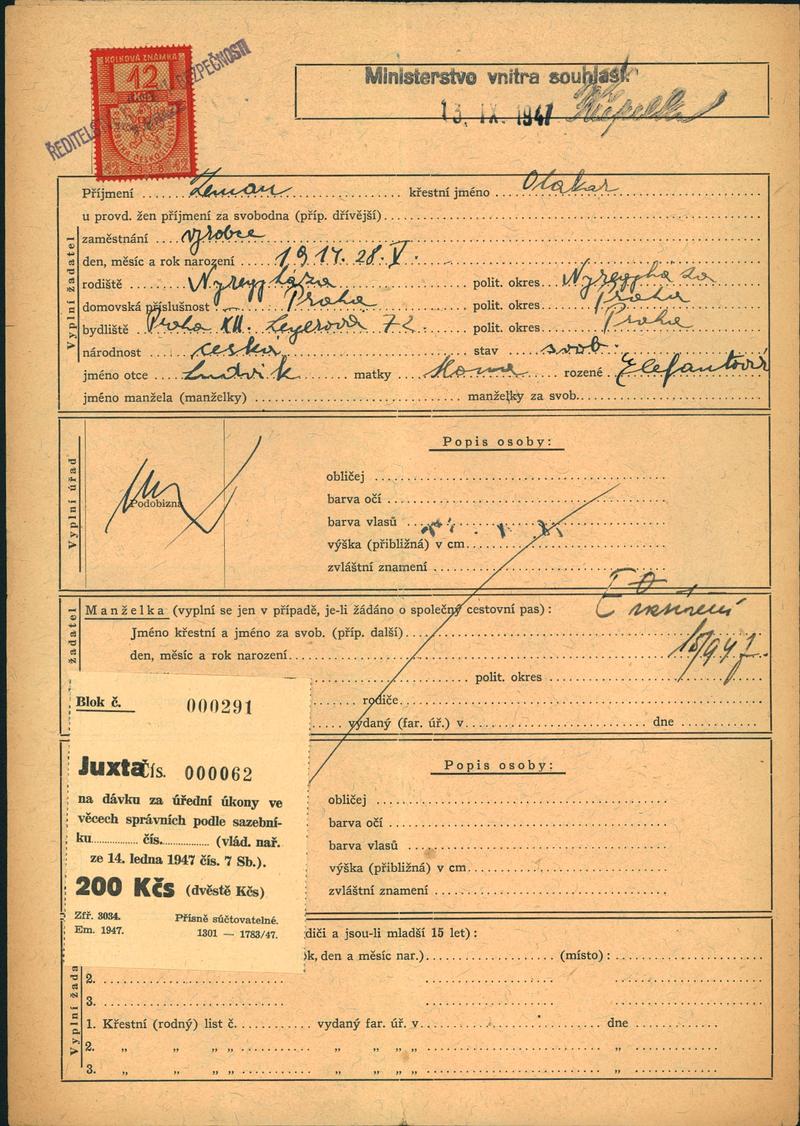 KOLKOVÁ ZNÁMKA
12
KČS
ŘEDITELST BEZPEČNOSTI
Ministerstvo vnitra souhlasí.
13. IX. 1947
Příjmení Zeman křestní jméno Otakar
u provd. žen příjmení za svobodna (příp. dřívější)
Vyplní žadatel
zaměstnání výrobce
den, měsíc a rok narození 1914. 28. V.
rodiště polit. okres
domovská příslušnost Praha polit. okres Praha
bydliště Praha XII. Legerova 72. polit. okres Praha
národnost česká stav svob.
jméno otce Ludvík matky rozené Elefantová
jméno manžela (manželky) manželky za svob.
Vyplní úřad
Popis osoby:
Podobizna
obličej
barva očí
barva vlasů
výška (přibližná) v cm
zvláštní znamení
žadatel
Manželka (vyplní se jen v případě, je-li žádáno o společný cestovní pas):
Jméno křestní a jméno za svob. (příp. další)
den, měsíc a rok narození
polit. okres
rodiče
vydaný (far. úř.) v dne
Blok č. 000291
Juxta Čís. 000062
na dávku za úřední úkony ve
věcech správních podle sazební-
ku čís. (vlád. nař.
ze 14. ledna 1947 čís. 7 Sb.).
200 Kčs (dvěstě Kčs)
Zfř. 3034. Přísně súčtovatelné.
Em. 1947. 1301 — 1783/47.
Popis osoby:
obličej
barva očí
barva vlasů
výška (přibližná) v cm
zvláštní znamení
diči a jsou-li mladší 15 let):
k, den a měsíc nar.) (místo):
Vyplní žada
2.
3.
1. Křestní (rodný) list č. vydaný far. úř. v dne
2. „ „ „ „ „ „ „ „ „
3. „ „ „ „ „ „ „ „ „